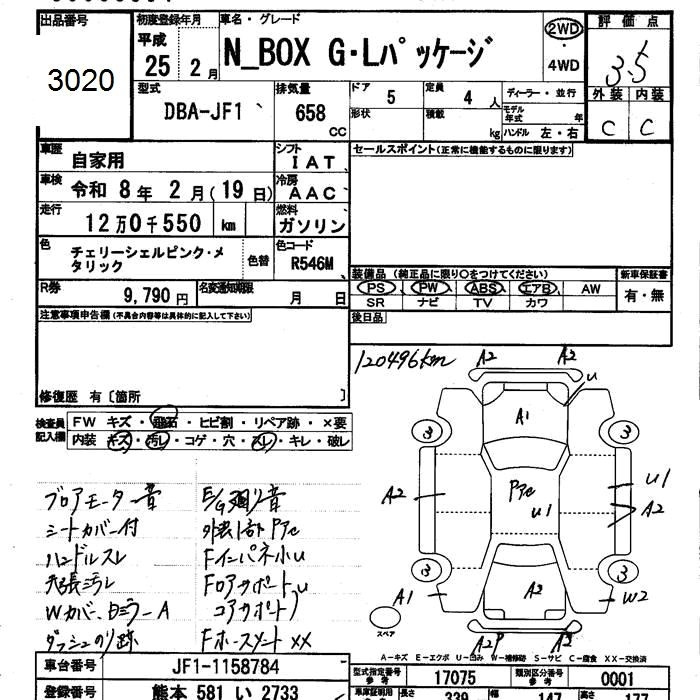 出品番号
3020
初度登録年月
平成
25 2月
車名・グレード
N_BOX G・Lパッケージ
2WD
4WD
評価点
3.5
外装 内装
C C
型式
DBA-JF1
排気量
658
CC
ドア
5
定員
4 人
形状
積載
kg
ディーラー・並行
モデル年式 年
ハンドル 左・右
車歴
自家用
シフト
IAT
セールスポイント(正常に機能するものに限ります)
車検
令和 8年 2月(19日)
冷房
AAC
走行
12万0千550 km
燃料
ガソリン
色
チェリーシェルピンク・メ
タリック
色替
色コード
R546M
R券
9,790円
名変通知期限
月 日
装備品 (純正品に限り○をつけてください)
PS PW ABS エアB AW
SR ナビ TV カワ
新車保証書
有・無
後日品
注意事項申告欄(不具合内容等は具体的に記入して下さい)
修復歴 有〔箇所 〕
検査員
記入欄
FW キズ・飛石・ヒビ割・リペア跡・×要
内装 キズ・汚レ・コゲ・穴・スレ・キレ・破レ
120496km
A2 A2
u
A1
3 3
A2
Pアe
u1
u1
A2
3 3
A1
A2
W2
スペア
A2P A2
ブロアモーター音
シートカバー付
ハンドルスレ
天張汚レ
Wカバー、ドミラーA
ダッシュのり跡
E/G廻り音
外装1部Pアe
Fインパネ小u
Fロアサポートu
コアサポート
Fホースメント××
A-キズ E-エクボ U-凹み W-補修跡 S-サビ C-腐食 XX-交換済
車台番号
JF1-1158784
型式指定番号
参考
17075
類別区分番号
参考
0001
登録番号
熊本 581 い 2733
車庫証明用
長さ
339
幅
147
高さ
177